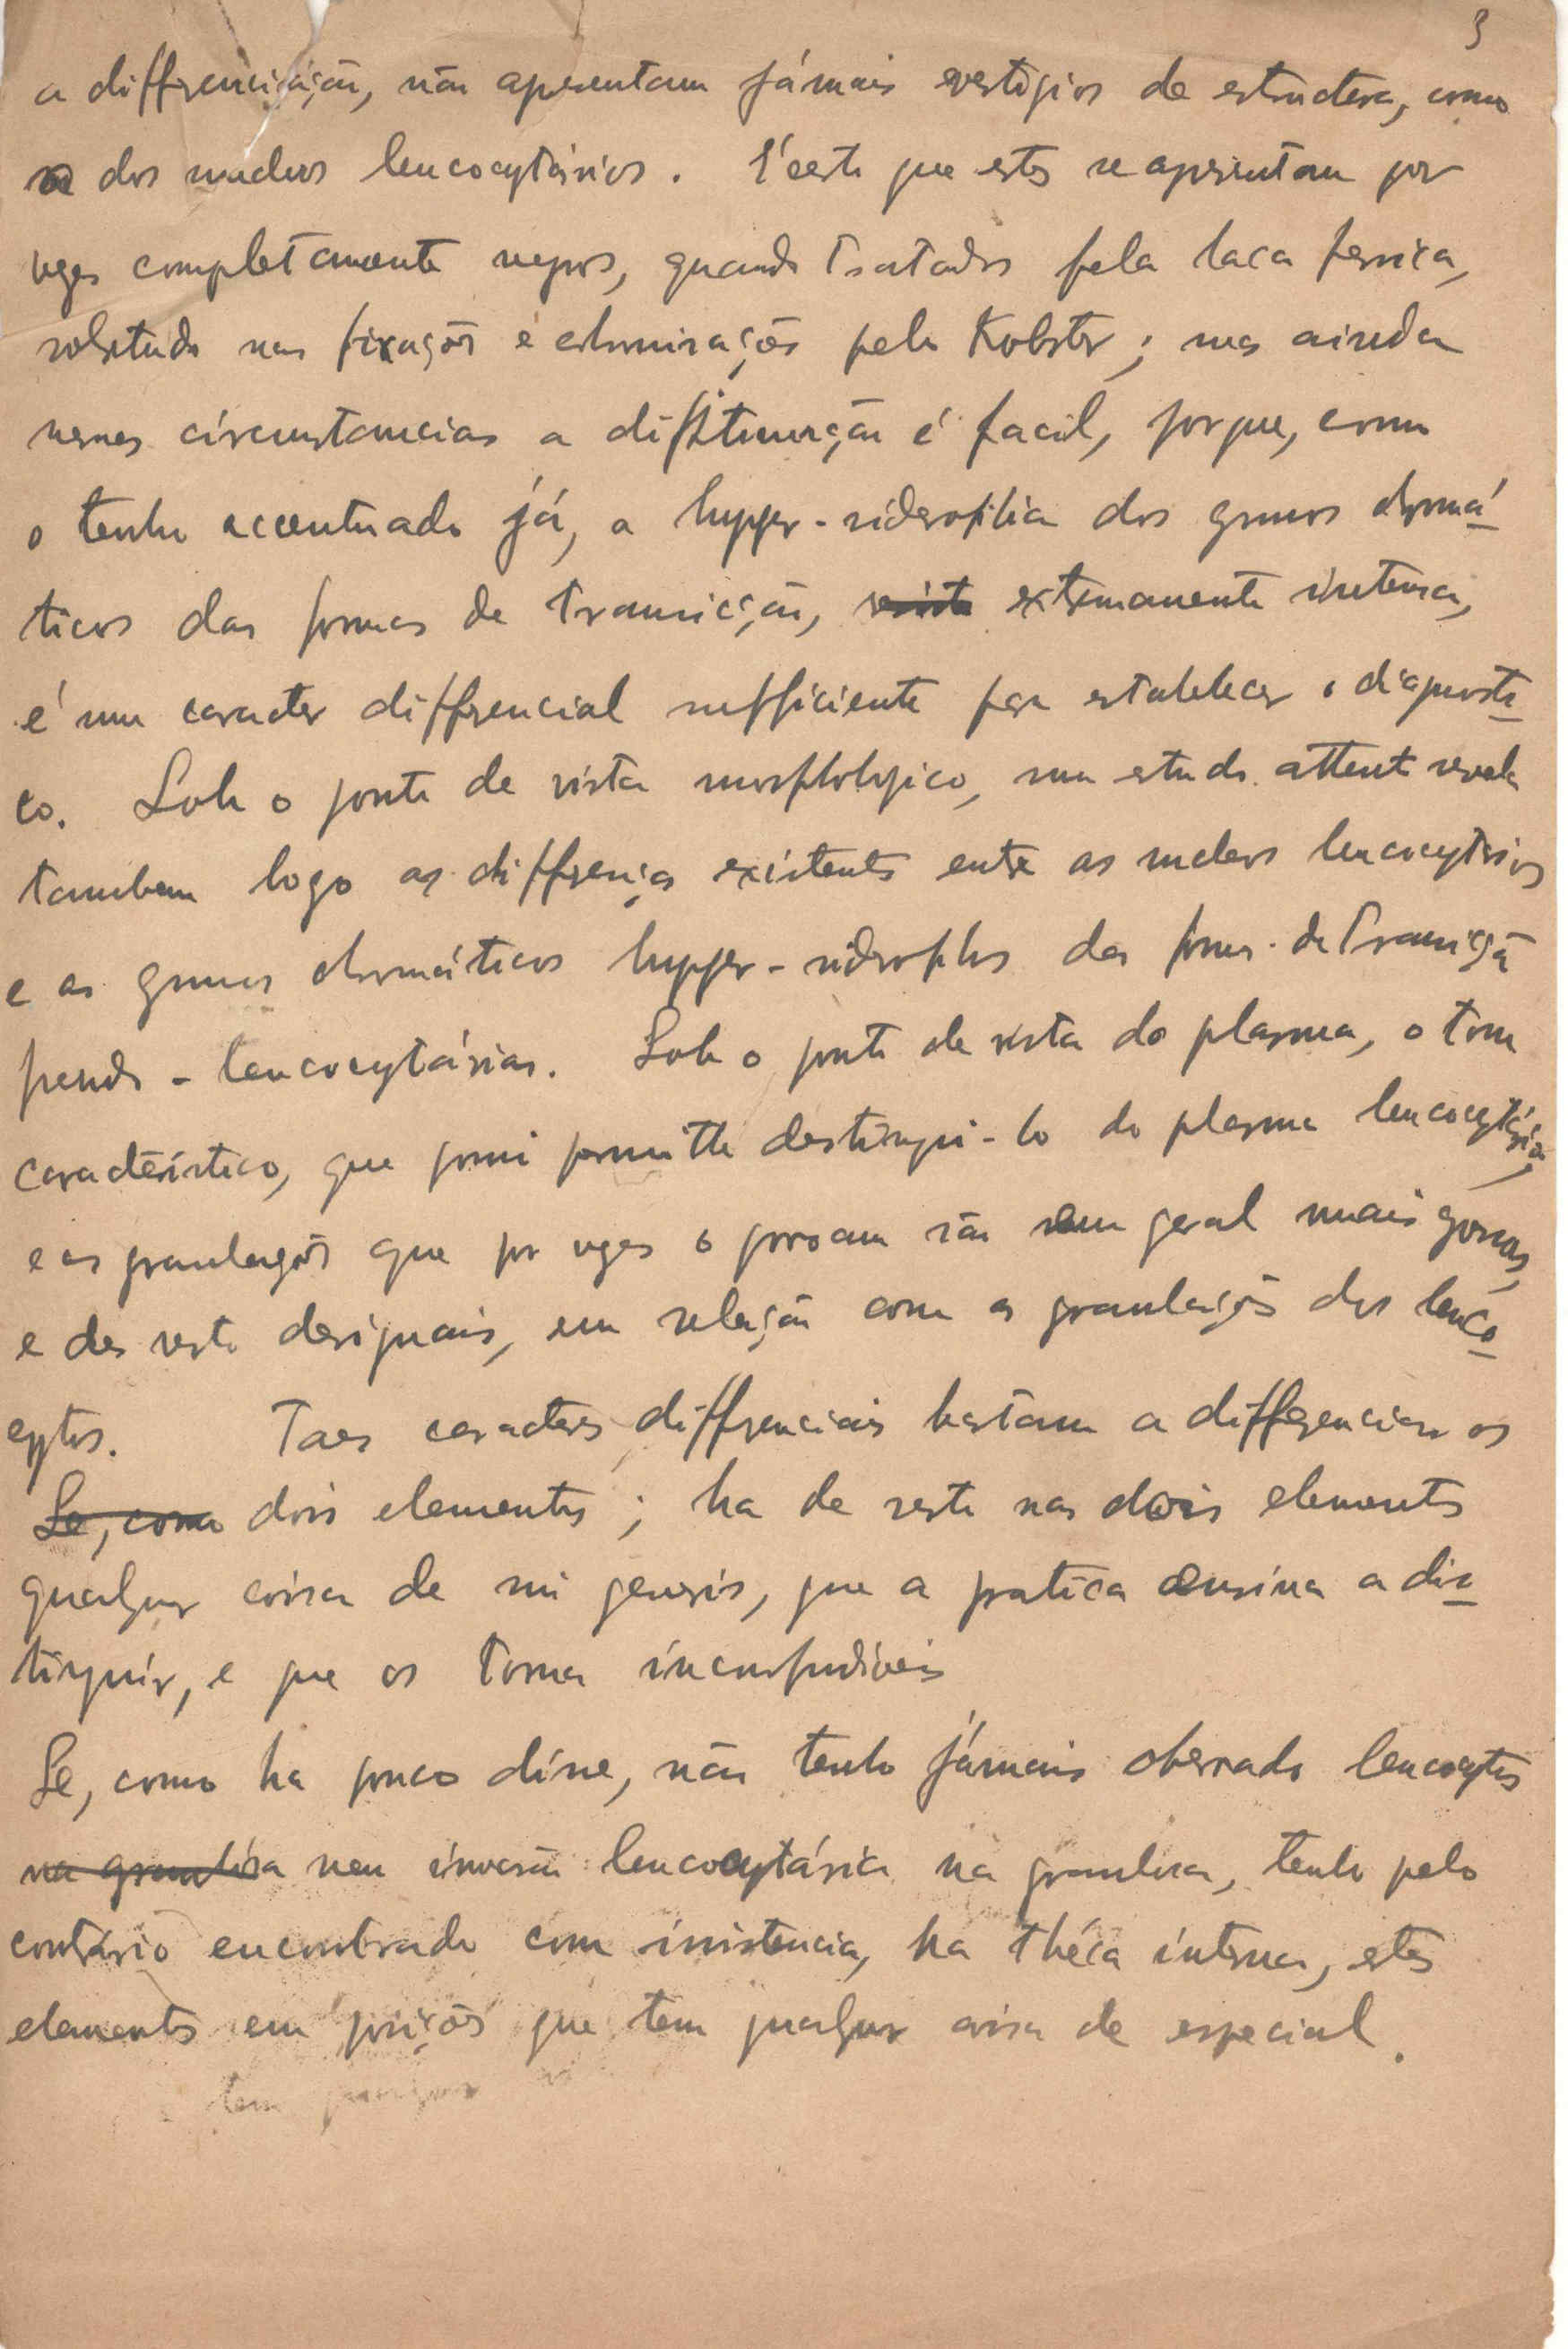 3
a differenciação, não apresentam jámais vestigios de estructura, como
a dos nucleos leucocytários. É certo que estes se apresentam por
vezes completamente negros, quando tratados pela laca ferrica,
sobretudo nas fixações e chromisações pelo Kolster; mas ainda
nessas circumstancias a destincção é facil, porque, como
o tenho accentuado já, a hypper-siderofilia dos grumos chromá-
ticos das formas de transicção, extremamente intensa,
é um caracter differencial sufficiente para estabelecer o diagnosti-
co. Sob o ponto de vista morphologico, um estudo attento revela
tambem logo as differenças existentes entre os nucleos leucocytários
e os grumos chromáticos hypper-siderophilos das formas de transição
pseudo-leucocytárias. Sob o ponto de vista do plasma, o tom
caracteristico, que possui permitte destingui-lo do plasma leucocytário,
e as granulações que por vezes o povoam são em geral mais grossas,
e de resto desiguais, em relação com as granulações dos leuco-
cytos. Taes caracteres differenciais bastam a differenciar os
Se, como dois elementos; ha de resto nos dois elementos
qualquer coisa de sui generis, que a pratica ensina a dis-
tinguir, e que os torna inconfundiveis
Se, como ha pouco disse, não tenho jámais observado leucocytos
na granulosa nem invasão leucocytária na granulosa, tenho pelo
contrário encontrado com insistencia, na théca interna, estes
elementos em posições que tem qualquer coisa de especial.
tem qualquer